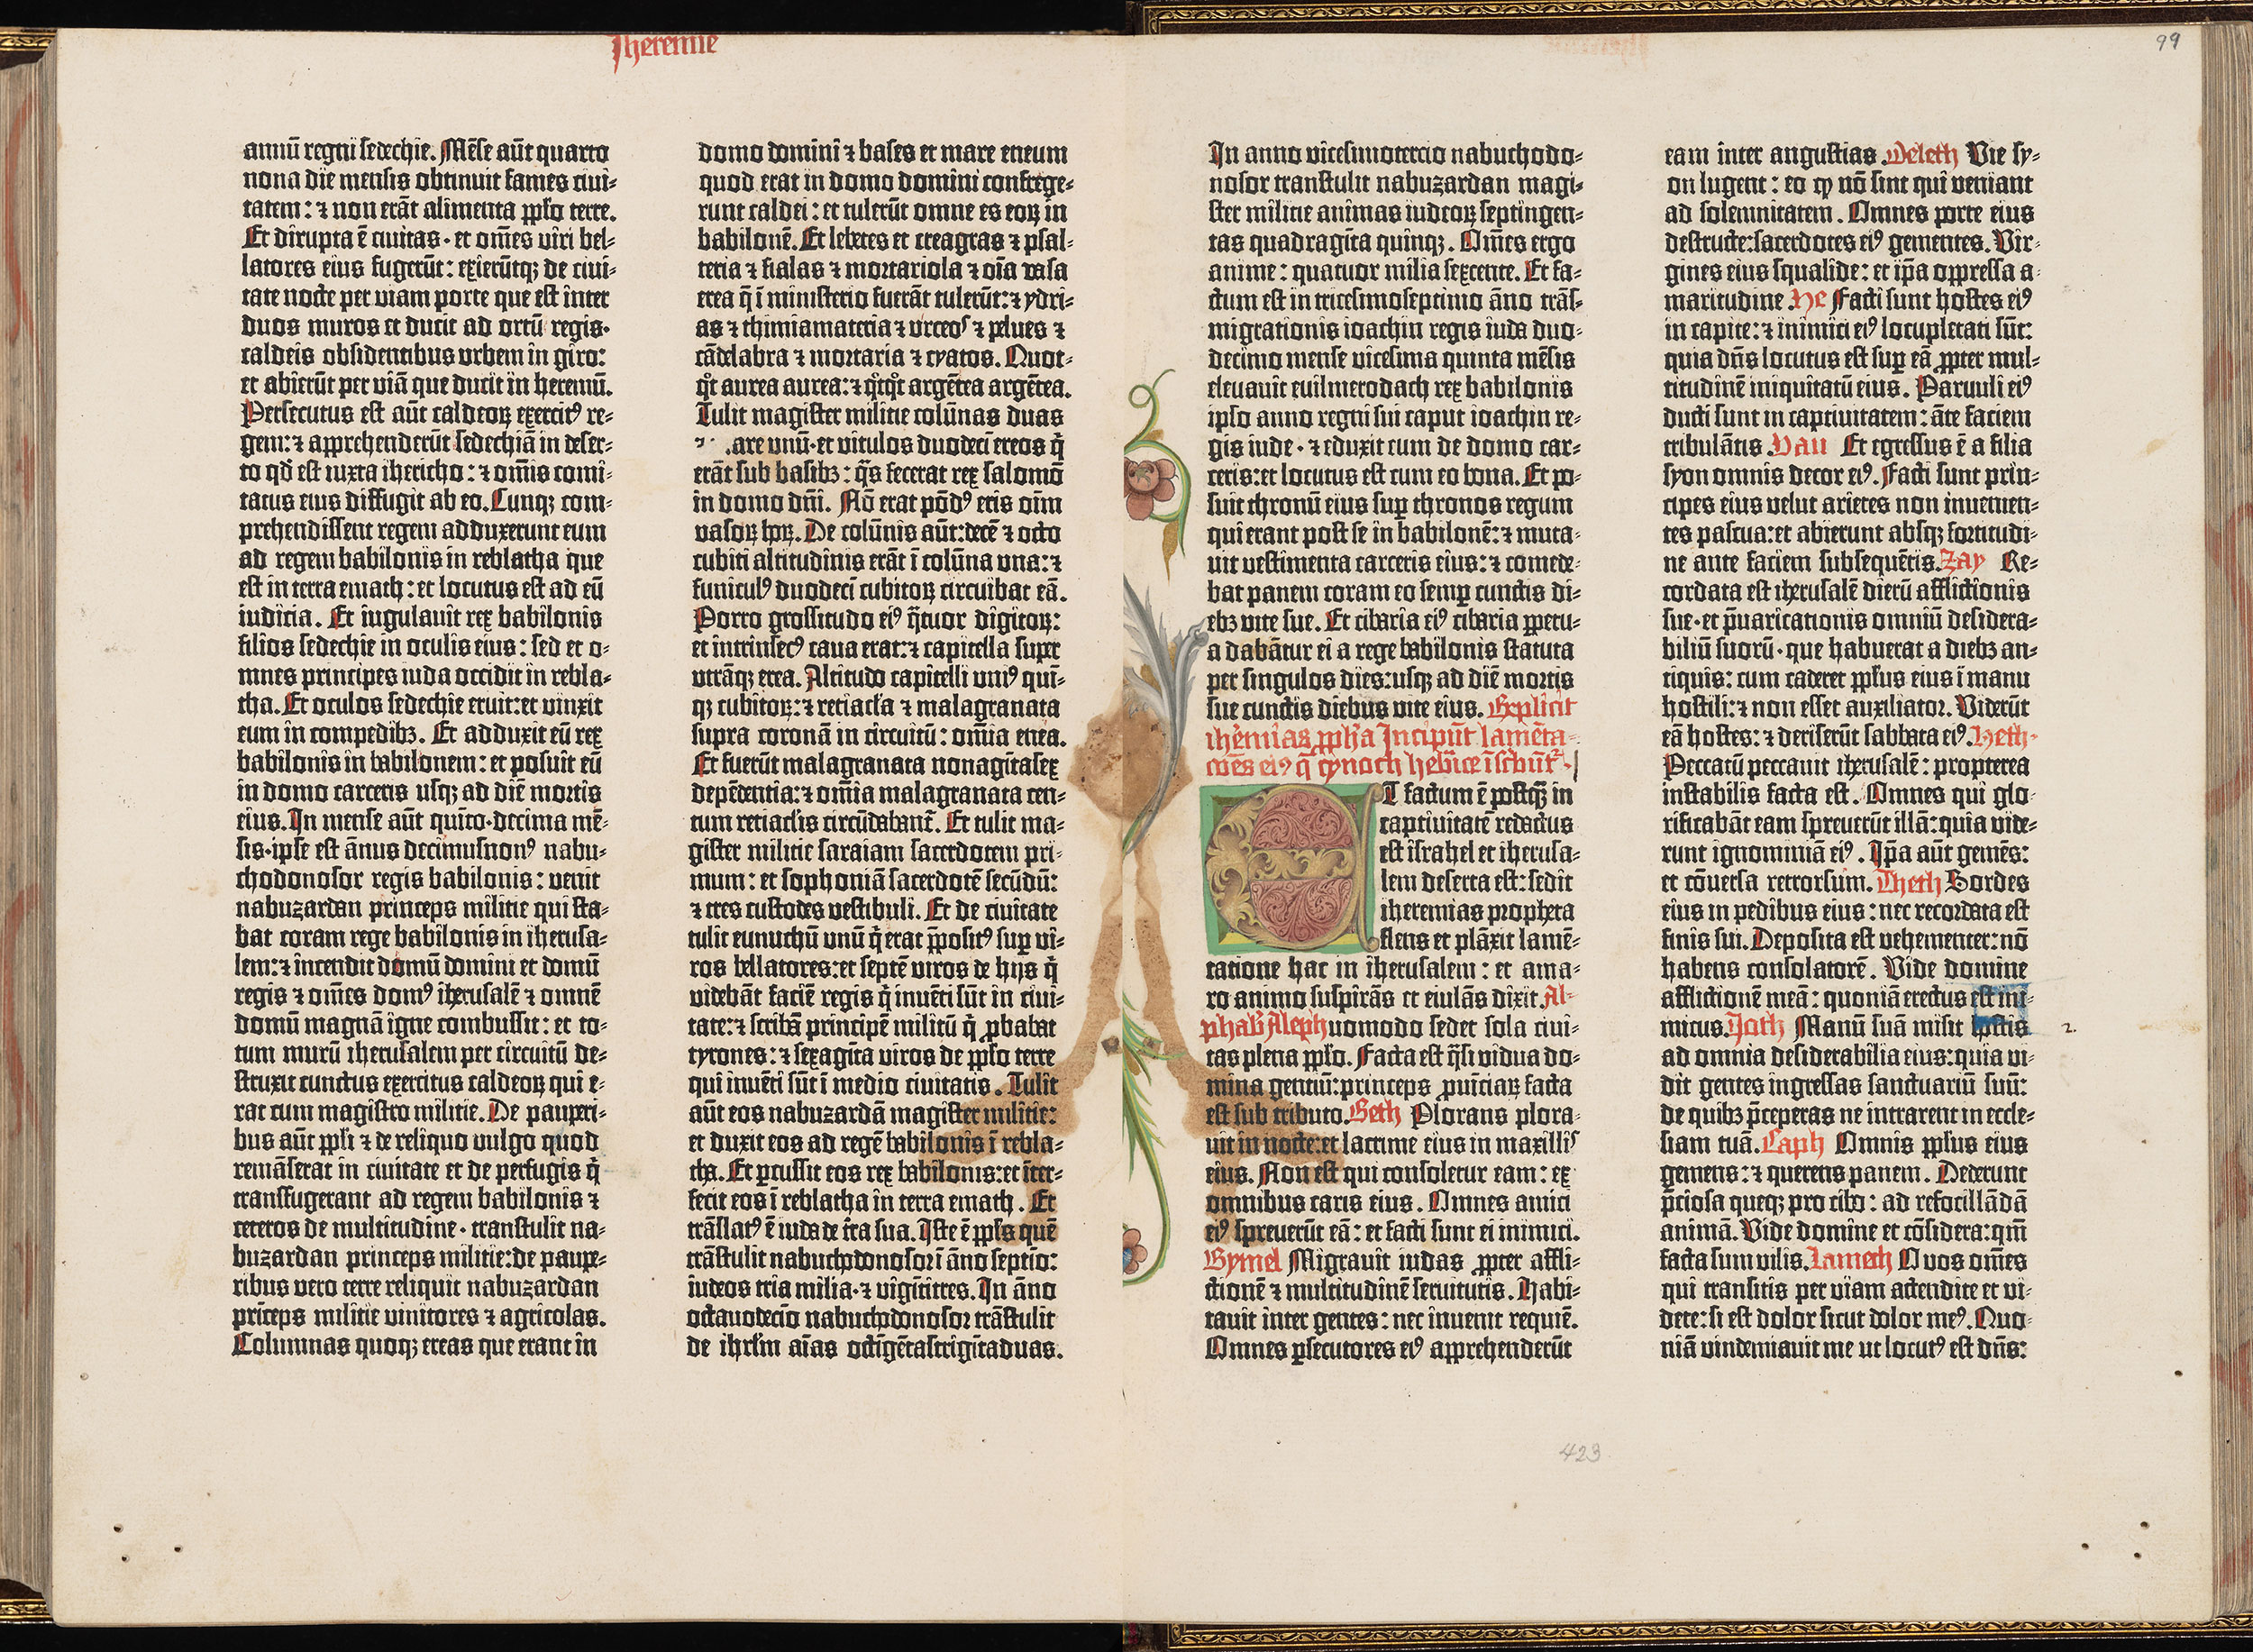 Iheremie
annū regni sedechie. Mēse aūt quarto
nona die mensis obtinuit fames ciui-
tatem: ⁊ non erāt alimenta pp̄lo terre.
Et dirupta ē ciuitas· et om̄es viri bel-
latores eius fugerūt: exierūtqꝫ de ciui-
tate nocte per viam porte que est inter
duos muros et ducit ad ortū regis·
caldeis obsidentibus vrbem in giro:
et abierūt per viā que ducit in heremū.
Persecutus est aūt caldeoꝝ exercitꝰ re-
gem: ⁊ apprehenderūt sedechiā in deser-
to qd̄ est iuxta ihericho: ⁊ om̄is comi-
tatus eius diffugit ab eo. Cunqꝫ com-
prehendissent regem adduxerunt eum
ad regem babilonis in reblatha que
est in terra emath: et locutus est ad eū
iudicia. Et iugulauit rex babilonis
filios sedechie in oculis eius: sed et o-
mnes principes iuda occidit in rebla-
tha. Et oculos sedechie eruit: et vinxit
eum in compedibꝫ. Et adduxit eū rex
babilonis in babilonem: et posuit eū
in domo carceris usqꝫ ad diē mortis
eius. In mense aūt quīto· decima mē-
sis· ipse est ānus decimusnonꝰ nabu-
chodonosor regis babilonis: venit
nabuzardan princeps militie qui sta-
bat coram rege babilonis in iherusa-
lem: ⁊ incendit domū domini et domū
regis ⁊ om̄es domꝰ ihrusalē ⁊ omnē
domū magnā igne combussit: et to-
tum murū iherusalem per circuitū de-
struxit cunctus exercitus caldeoꝝ qui e-
rat cum magistro militie. De pauperi-
bus aūt pp̄li ⁊ de reliquo vulgo quod
remāserat in ciuitate et de perfugis q̄
transfugerant ad regem babilonis ⁊
ceteros de multitudine· transtulit na-
buzardan princeps militie: de paupe-
ribus vero terre reliquit nabuzardan
prīceps militie vinitores ⁊ agricolas.
Columnas quoqꝫ ereas que erant in
domo domini ⁊ bases et mare eneum
quod erat in domo domini confrege-
runt caldei: et tulerūt omne es eoꝝ in
babilonē. Et lebetes et creagras ⁊ psal-
teria ⁊ fialas ⁊ mortariola ⁊ oīa vasa
erea q̄ ī ministerio fuerāt tulerūt: ⁊ ydri-
as ⁊ thimiamateria ⁊ vrceos ⁊ pelues ⁊
cādelabra ⁊ mortaria ⁊ cyatos. Quot-
qͦt aurea aurea: ⁊ qͦtqͦt argētea argētea.
Tulit magister militie colūnas duas
⁊ are unū· et vitulos duodecī ereos q̄
erāt sub basibꝫ: q̄s fecerat rex salomō
in domo dn̄i. Nō erat pōdꝰ eris oīm
vasoꝝ hoꝝ. De colūnis aūt: decē ⁊ octo
cubiti altitudinis erāt ī colūna vna: ⁊
funiculꝰ duodecī cubitoꝝ circuibat eā.
Porro grossitudo eiꝰ q̄tuor digitoꝝ:
et intrinsecꝰ caua erat: ⁊ capitella super
vtrāqꝫ erea. Altitudo capitelli vniꝰ quī-
qꝫ cubitoꝝ: ⁊ retiacl̄a ⁊ malagranata
supra coronā in circuitū: om̄ia enea.
Et fuerūt malagranata nonagītasex
depēdentia: ⁊ om̄ia malagranata cen-
tum retiacl̄is circūdabant᷑. Et tulit ma-
gister militie saraiam sacerdotem pri-
mum: et sophoniā sacerdotē secūdū:
⁊ tres custodes vestibuli. Et de ciuitate
tulit eunuchū unū q̄ erat p̄positꝰ sup̄ vi-
ros bellatores: et septē viros de hijs q̄
videbāt faciē regis q̄ inuēti sūt in ciui-
tate: ⁊ scribā principē militū q̄ ꝓbabat
tyrones: ⁊ sexagīta viros de pp̄lo terre
qui inuēti sūt ī medio ciuitatis. Tulit
aūt eos nabuzardā magister militie:
et duxit eos ad regē babilonis ī rebla-
tha. Et ꝑcussit eos rex babilonis: et īter-
fecit eos ī reblatha in terra emath. Et
trāslatꝰ ē iuda de t̄ra sua. Iste ē pp̄ls quē
trāstulit nabuchodonosor ī āno septīo:
iudeos tria milia· ⁊ vigītitres. In āno
octauodecīo nabuchodonosor trāstulit
de ihrl̄m aīas octīgētastrigītaduas.
In anno vicesimotercio nabuchodo-
nosor transtulit nabuzardan magi-
ster militie animas iudeoꝝ septingen-
tas quadragīta quinqꝫ. Om̄es ergo
anime: quatuor milia sexcente. Et fa-
ctum est in tricesimoseptimo āno trās-
migrationis ioachin regis iuda duo-
decimo mense vicesima quinta mēsis
eleuauit euilmerodach rex babilonis
ipso anno regni sui caput ioachin re-
gis iude· ⁊ eduxit eum de domo car-
ceris: et locutus est cum eo bona. Et po-
suit thronū eius sup̄ thronos regum
qui erant post se in babilonē: ⁊ muta-
uit vestimenta carceris eius: ⁊ comede-
bat panem coram eo semp̄ cunctis di-
ebꝫ vite sue. Et cibaria eiꝰ cibaria ꝑpetu-
a dabātur ei a rege babilonis statuta
per singulos dies: usqꝫ ad diē mortis
sue cunctis diebus vite eius. Explicit
ihēmias ꝓph̄a Incipiūt lamēta-
cōes eiꝰ q̄ cynoth hebᷓice īscbūt᷑·
ET factum ē postqꝫ̄ in
captiuitatē redactus
est israhel et iherusa-
lem deserta est: sedit
iheremias propheta
flens et plāxit lamē-
tatione hac in iherusalem: et ama-
ro animo suspirās et eiulās dixit Al-
phab̄ Aleph uomodo sedet sola ciui-
tas plena pp̄lo. Facta est q̄si vidua do-
mina gentiū: princeps ꝓuīciaꝝ facta
est sub tributo. Beth Plorans plora-
uit in nocte: et lacrime eius in maxillis
eius. Non est qui consoletur eam: ex
omnibus caris eius. Omnes amici
eiꝰ spreuerūt eā: et facti sunt ei inimici.
Gymel Migrauit iudas ꝓpter affli-
ctionē ⁊ multitudinē seruitutis. Habi-
tauit inter gentes: nec inuenit requiē.
Omnes ꝑsecutores eiꝰ apprehenderūt
99
eam inter angustias. Deleth Vie sy-
on lugent: eo ꝙ nō sint qui veniant
ad solemnitatem. Omnes porte eius
destructe: sacerdotes eiꝰ gementes. Vir-
gines eius squalide: et ip̄a oppressa a-
maritudine. He Facti sunt hostes eiꝰ
in capite: ⁊ inimici eiꝰ locupletati sūt:
quia dn̄s locutus est sup̄ eā ꝓpter mul-
titudinē iniquitatū eius. Paruuli eiꝰ
ducti sunt in captiuitatem: āte faciem
tribulātis. Vau Et egressus ē a filia
syon omnis decor eiꝰ. Facti sunt prin-
cipes eius velut arietes non inuenien-
tes pascua: et abierunt absqꝫ fortitudi-
ne ante faciem subsequētis. Zay Re-
cordata est ihrusalē dierū afflictionis
sue· et p̄uaricationis omniū desidera-
biliū suorū· que habuerat a diebꝫ an-
tiquis: cum caderet pp̄lus eius ī manu
hostili: ⁊ non esset auxiliator. Viderūt
eā hostes: ⁊ deriserūt sabbata eiꝰ. Heth·
Peccatū peccauit ihrusalē: propterea
instabilis facta est. Omnes qui glo-
rificabāt eam spreuerūt illā: quia vide-
runt ignominiā eiꝰ. Ip̄a aūt gemēs:
et cōuersa retrorsum. Theth Sordes
eius in pedibus eius: nec recordata est
finis sui. Deposita est vehementer: nō
habens consolatorē. Vide domine
afflictionē meā: quoniā erectus est ini-
micus. Joth Manū suā misit hostis
2.
ad omnia desiderabilia eius: quia vi-
dit gentes ingressas sanctuariū suū:
de quibꝫ p̄ceperas ne intrarent in eccle-
siam tuā. Caph Omnis pp̄lus eius
gemens: ⁊ querens panem. Dederunt
p̄ciosa queqꝫ pro cibo: ad refocillādā
animā. Vide domine et cōsidera: qm̄
facta sum vilis. Lameth O vos om̄es
qui transitis per viam attendite et vi-
dete: si est dolor sicut dolor meꝰ. Quo-
niā vindemiauit me ut locutꝰ est dn̄s:
423